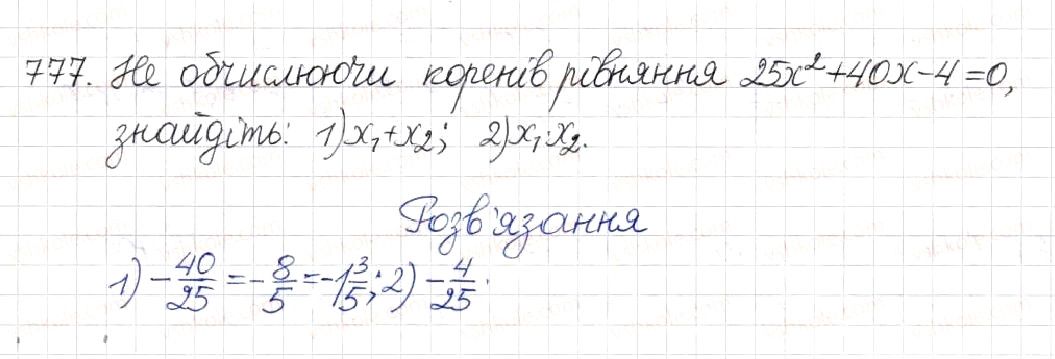 777. Не обчислюючи коренів рівняння 25x²+40x-4=0,
знайдіть: 1) x₁+x₂; 2) x₁·x₂.
Розв'язання
1) -40/25 = -8/5 = -1 3/5; 2) -4/25.